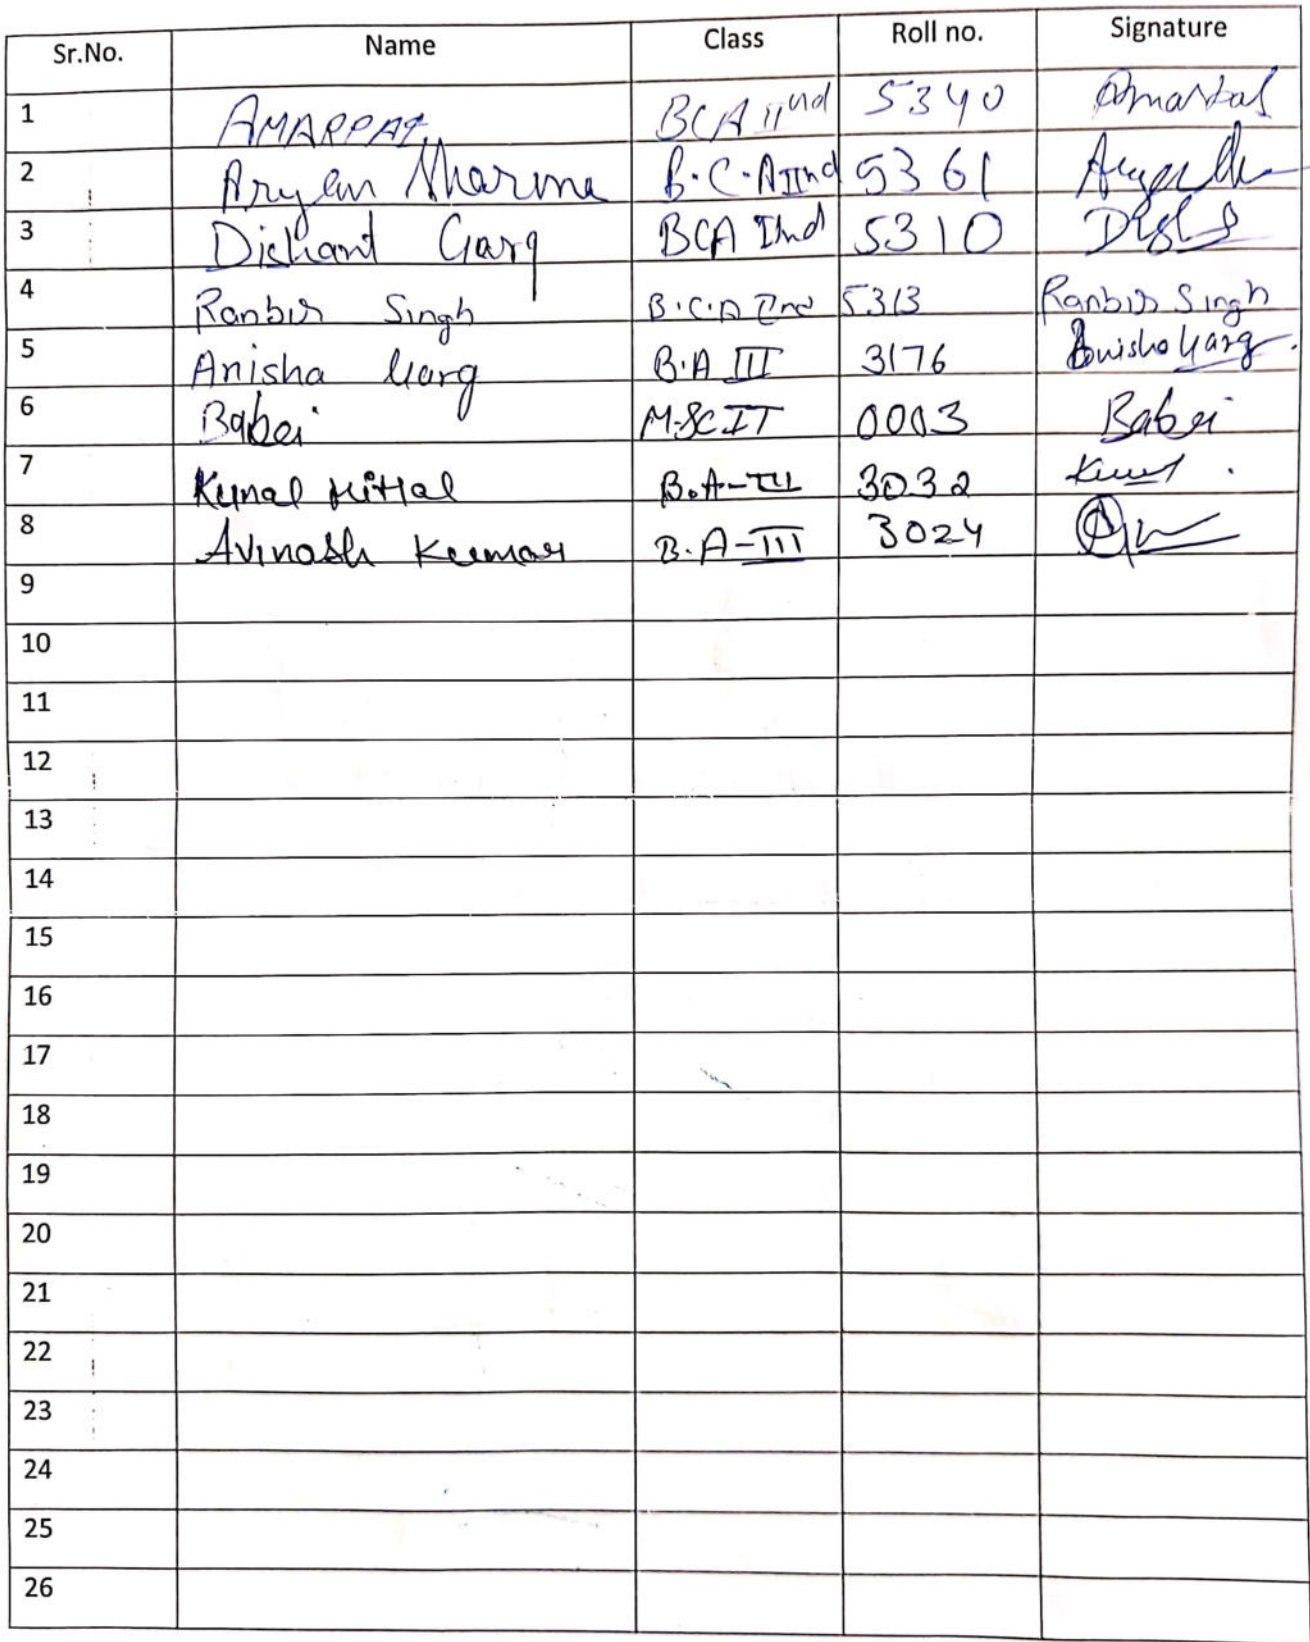 Sr.No. Name Class Roll no. Signature
1 AMARPAL BCA IInd 5340 Amarpal
2 Aryan Sharma B.C.A IInd 5361
3 Dishant Garg BCA IInd 5310
4 Ranbir Singh B.C.A IInd 5313 Ranbir Singh
5 Anisha Garg B.A III 3176 Anisha Garg.
6 Babei M.SC IT 0003 Babei
7 Kunal Mittal B.A-III 3032
8 Avinash Kumar B.A-III 3024
9
10
11
12
13
14
15
16
17
18
19
20
21
22
23
24
25
26